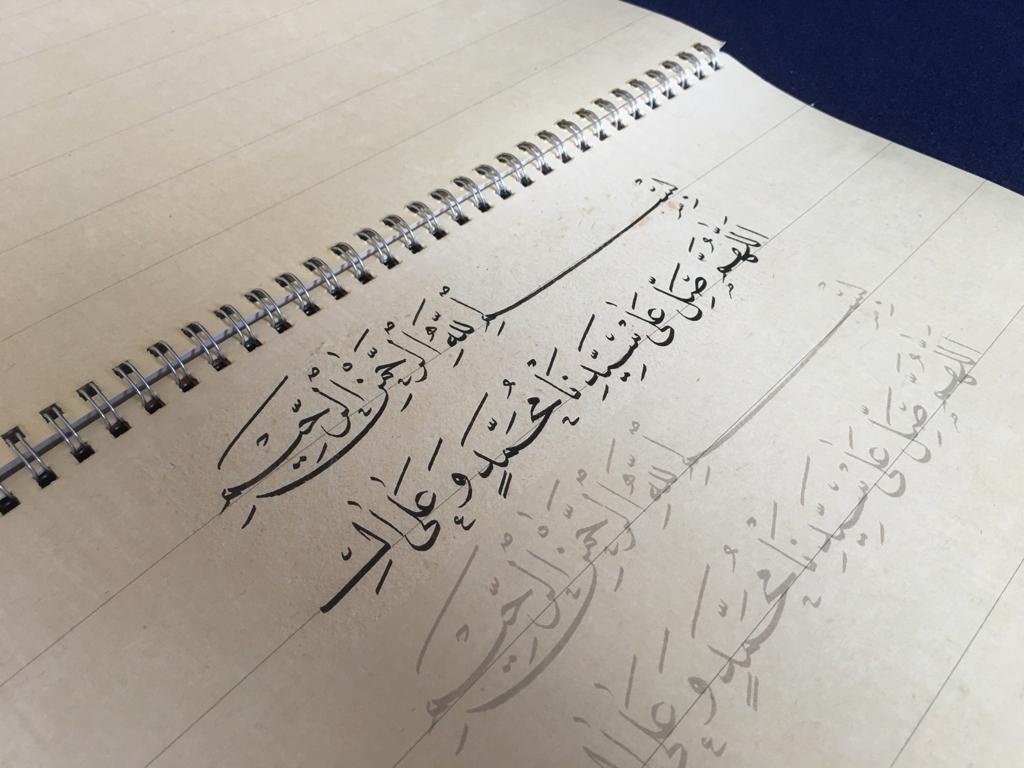 بِسْمِ اللَّهِ الرَّحْمَنِ الرَّحِيمِ
اللَّهُمَّ صَلِّ عَلَى سَيِّدِنَا مُحَمَّدٍ وَعَلَى آلِ
بِسْمِ اللَّهِ الرَّحْمَنِ الرَّحِيمِ
اللَّهُمَّ صَلِّ عَلَى سَيِّدِنَا مُحَمَّدٍ وَعَلَى